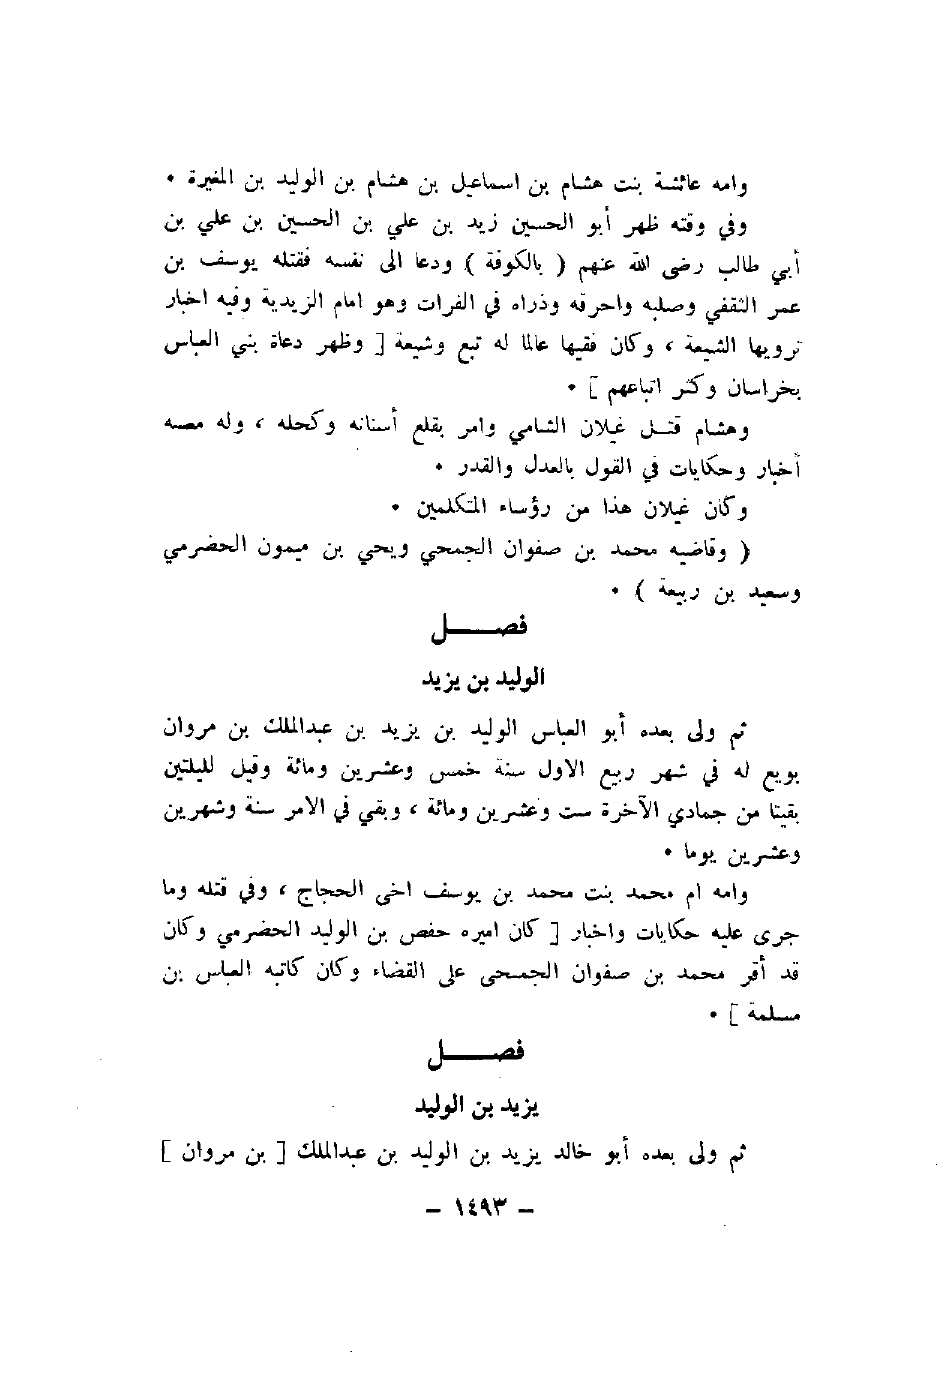 وامه عائشة بنت هشام بن اسماعيل بن هشام بن الوليد بن المغيرة •
وفي وقته ظهر أبو الحسين زيد بن علي بن الحسين بن علي بن
أبي طالب رضى الله عنهم ( بالكوفة ) ودعا الى نفسه فقتله يوسف بن
عمر الثقفي وصلبه واحرقه وذراه في الفرات وهو امام الزيدية وفيه اخبار
ترويها الشيعة ، وكان فقيها عالما له تبع وشيعة [ وظهر دعاة بني العباس
بخراسان وكثر اتباعهم ] •
وهشام قتل غيلان الشامي وامر بقلع أسنانه وكحله ، وله معه
أخبار وحكايات في القول بالعدل والقدر •
وكان غيلان هذا من رؤساء المتكلمين •
( وقاضيه محمد بن صفوان الجمحي ويحي بن ميمون الحضرمي
وسعيد بن ربيعة ) •
فصل
الوليد بن يزيد
ثم ولى بعده أبو العباس الوليد بن يزيد بن عبدالملك بن مروان
بويع له في شهر ربيع الاول سنة خمس وعشرين ومائة وقيل لليلتين
بقيتا من جمادي الآخرة ست وعشرين ومائة ، وبقي في الامر سنة وشهرين
وعشرين يوما •
وامه ام محمد بنت محمد بن يوسف اخى الحجاج ، وفي قتله وما
جرى عليه حكايات واخبار [ كان اميره حفص بن الوليد الحضرمي وكان
قد أقر محمد بن صفوان الجمحى على القضاء وكان كاتبه العباس بن
مسلمة ] •
فصل
يزيد بن الوليد
ثم ولى بعده أبو خالد يزيد بن الوليد بن عبدالملك [ بن مروان ]
– ١٤٩٣ –